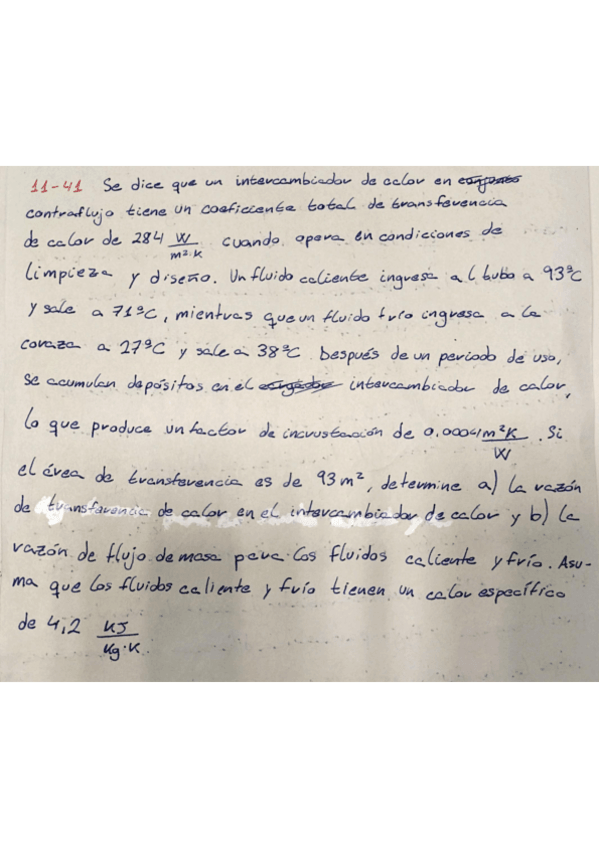 11-41 Se dice que un intercambiador de calor en
contraflujo tiene un coeficiente total de transferencia
de calor de 284 W/m²·K cuando opera en condiciones de
limpieza y diseño. Un fluido caliente ingresa al tubo a 93ºC
y sale a 71ºC, mientras que un fluido frío ingresa a la
coraza a 27ºC y sale a 38ºC. Después de un periodo de uso,
se acumulan depósitos en el intercambiador de calor,
lo que produce un factor de incrustación de 0,0004 m²K/W. Si
el área de transferencia es de 93 m², determine a) la razón
de transferencia de calor en el intercambiador de calor y b) la
razón de flujo de masa para los fluidos caliente y frío. Asu-
ma que los fluidos caliente y frío tienen un calor específico
de 4,2 KJ/Kg·K.